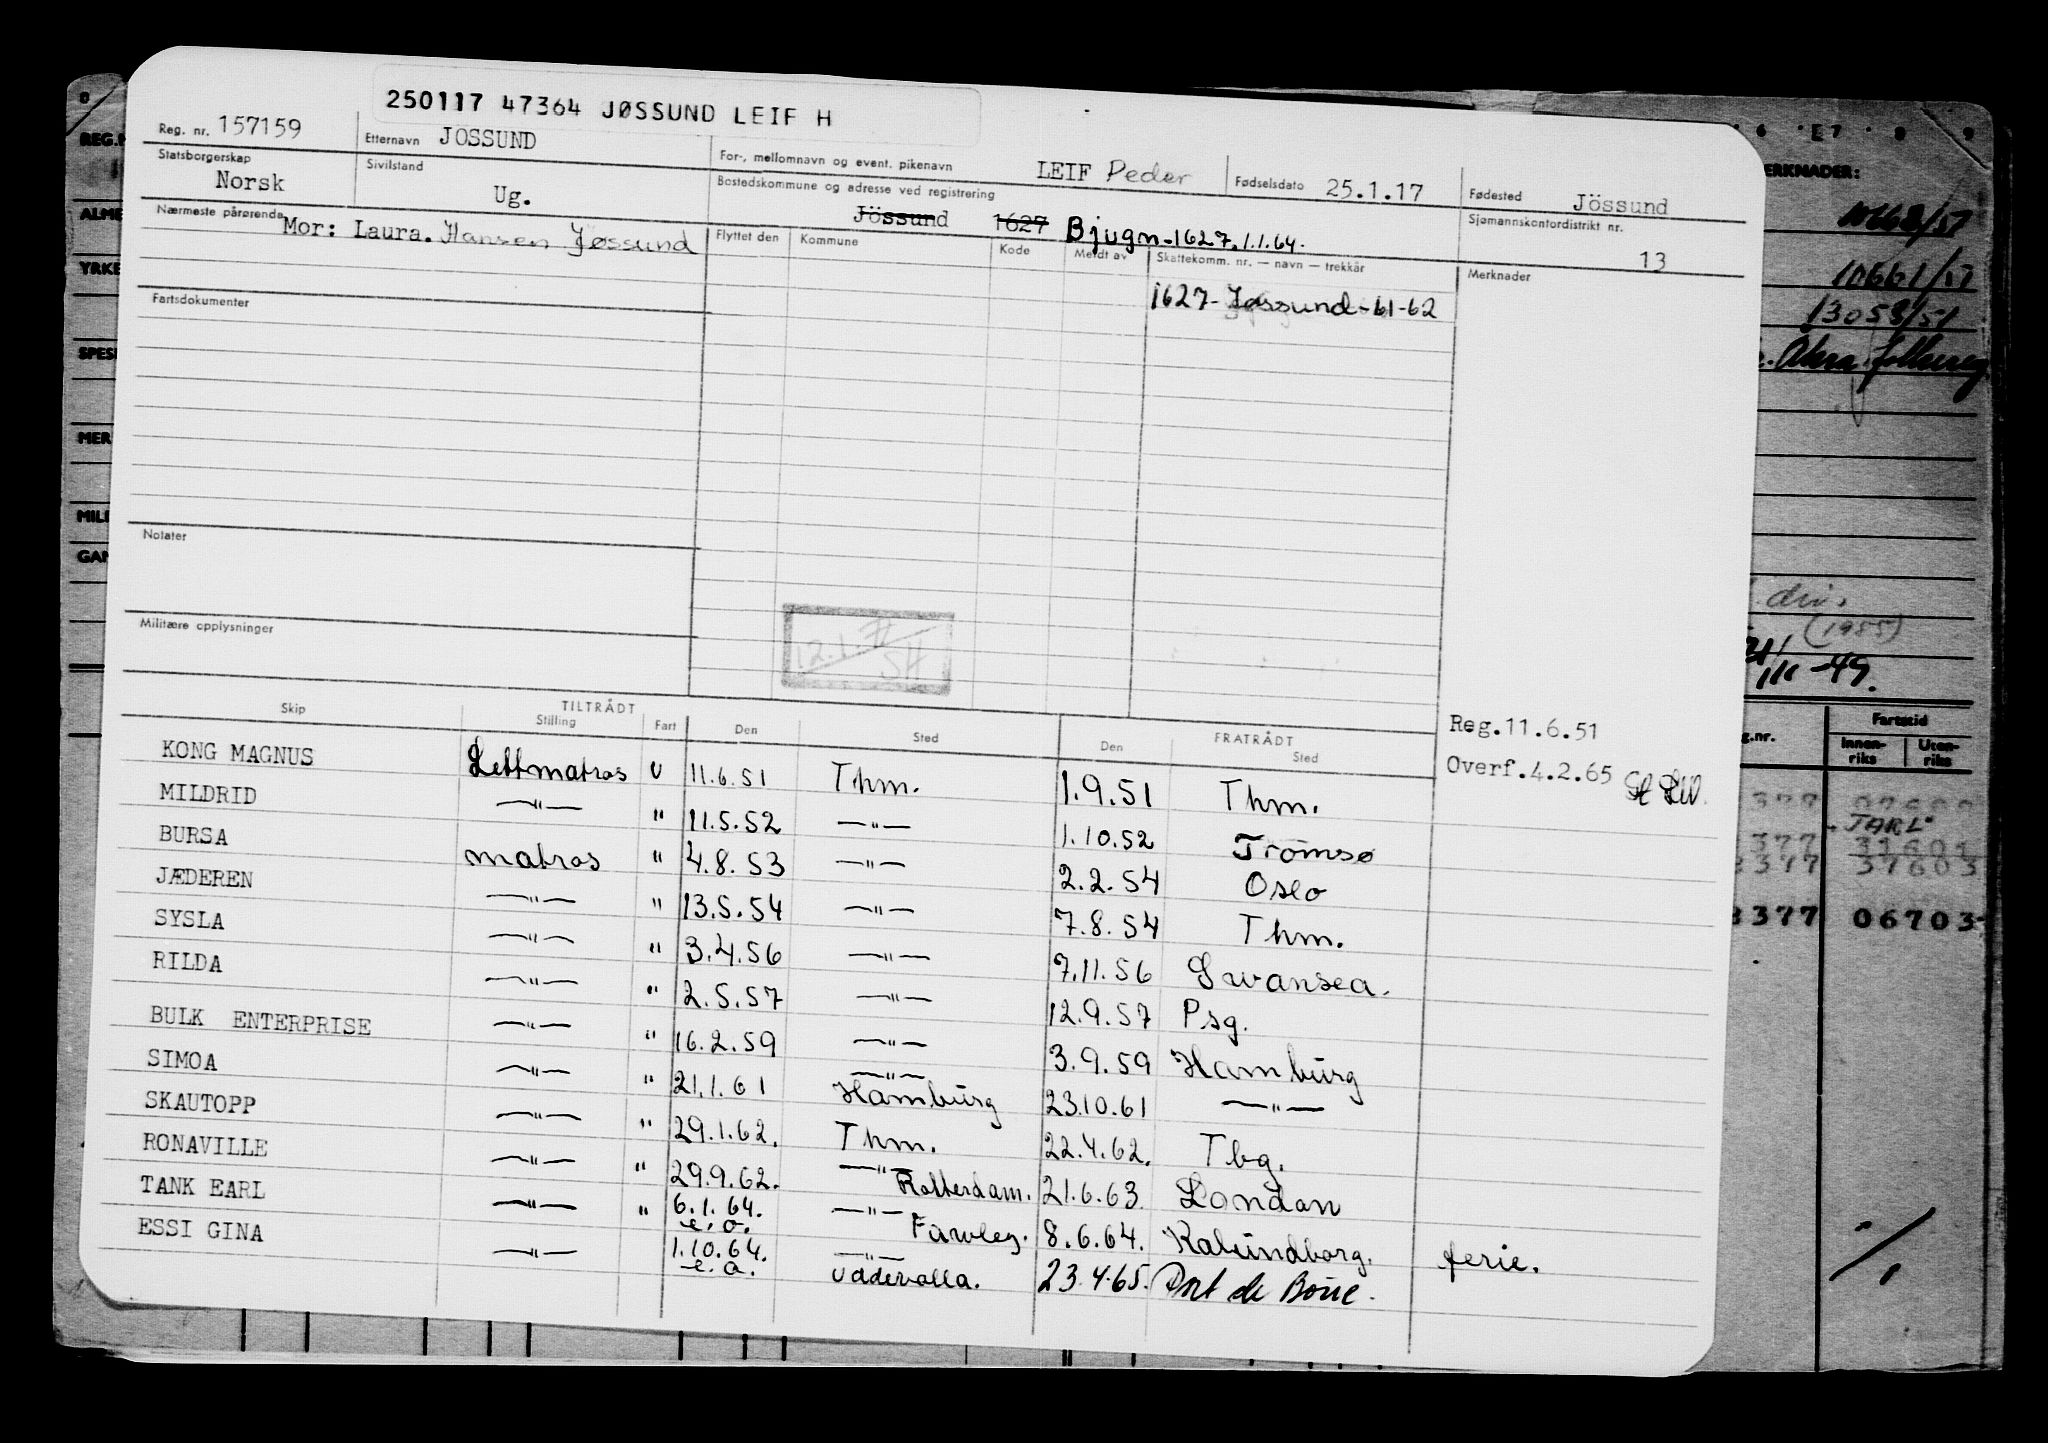 250117 47364 JØSSUND LEIF H
Reg. nr. 157159 Etternavn JOSSUND For-, mellomnavn og event. pikenavn LEIF Peder Fødselsdato 25.1.17 Fødested Jössund
Statsborgerskap Norsk Sivilstand Ug. Bostedskommune og adresse ved registrering Jössund 1627 Bjugn-1627. 1.1.64. Sjømannskontordistrikt nr. 13
Nærmeste pårørende Mor: Laura. Hansen Jøssund Flyttet den Kommune Kode Meldt av Skattekomm. nr. — navn — trekkår Merknader
1627- Jøssund-61-62
Fartsdokumenter
Notater
12.1. SH
Militære opplysninger
Reg.11.6.51
Overf.4.2.65
Skip TILTRÅDT Stilling Fart Den Sted FRATRÅDT Den Sted
KONG MAGNUS Lettmatros U 11.6.51 Thm. 1.9.51 Thm.
MILDRID —"— " 11.5.52 —"— 1.10.52 Tromsø
BURSA matros " 4.8.53 —"— 2.2.54 Oslo
JÆDEREN —"— " 13.5.54 —"— 7.8.54 Thm.
SYSLA —"— " 3.4.56 —"— 7.11.56 Swansea.
RILDA —"— " 2.5.57 —"— 12.9.57 Psg.
BULK ENTERPRISE —"— " 16.2.59 —"— 3.9.59 Hamburg
SIMOA —"— " 21.1.61 —"— Hamburg 23.10.61 —"—
SKAUTOPP —"— " 29.1.62. Thm. 22.4.62. Tbg.
RONAVILLE —"— " 29.9.62. —"— Rotterdam. 21.6.63. London
TANK EARL —"— " 6.1.64. e.o. —"— Fawley. 8.6.64. Kalundborg. ferie.
ESSI GINA —"— 1.10.64. e.o. —"— Uddevalla. 23.4.65. Port de Bouc.
0
REG.N
ALME
YRKE
SPESI
MER
MILI
GAN
6 7 8 9
ERKNADER:
10668/51
10661/57
13058/51
div.
(1955)
Fartstid
g.nr. Innen-riks Uten-riks
JARL
377 31601
377 37603
3377 06703